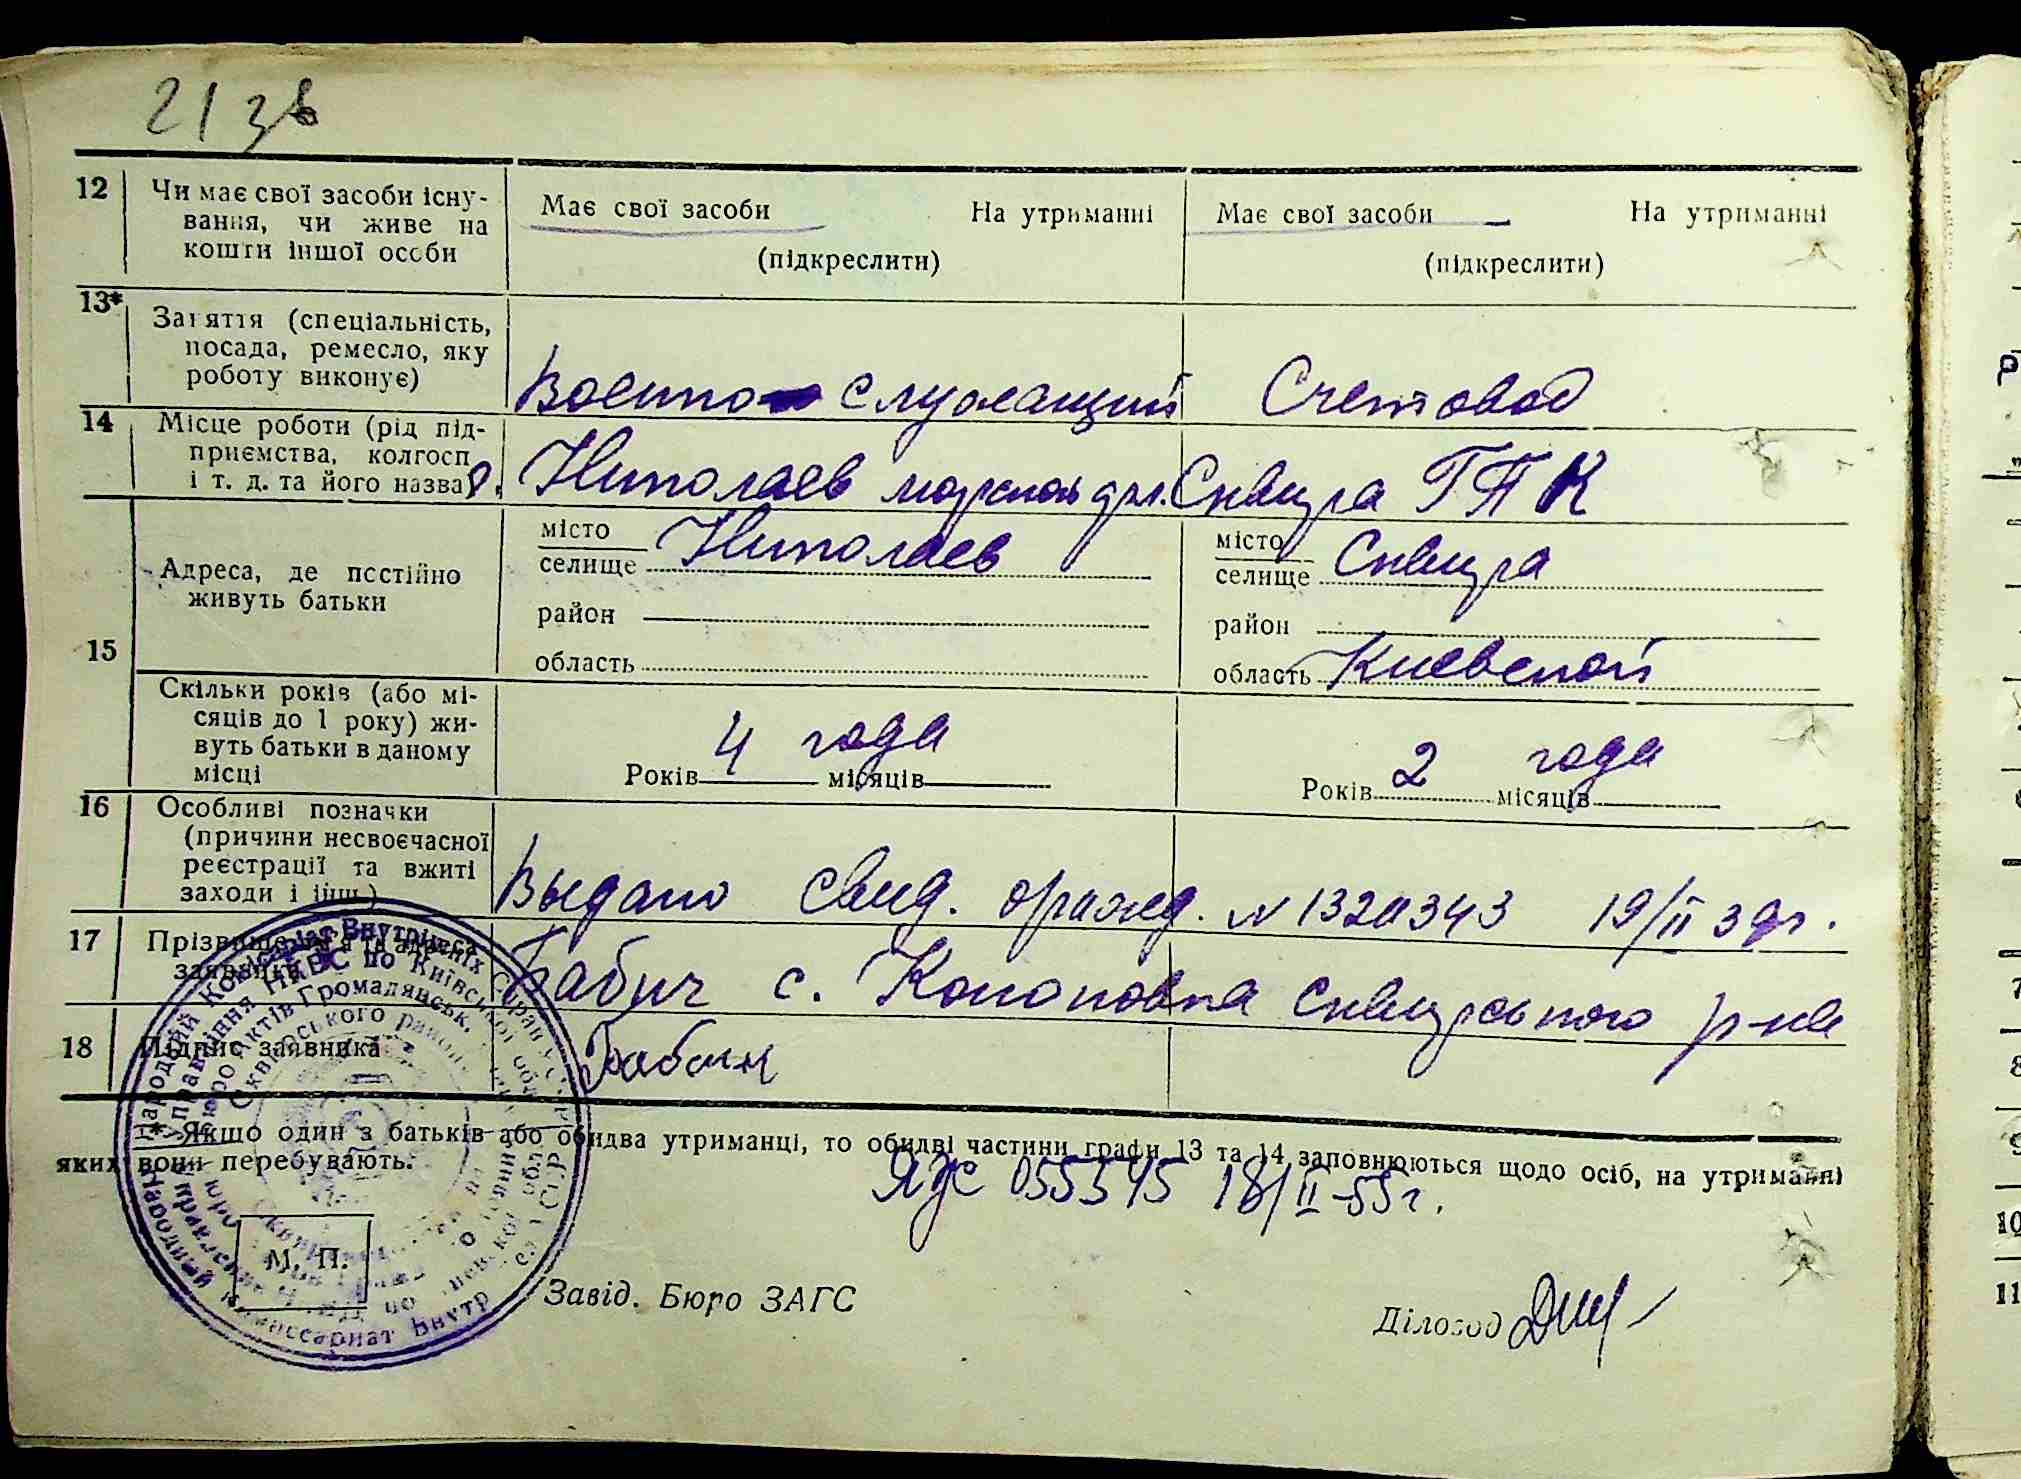 21 зв
12 Чи має свої засоби існу-
вання, чи живе на
кошти іншої особи
Має свої засоби На утриманні
(підкреслити)
Має свої засоби На утриманні
(підкреслити)
13* Заняття (спеціальність,
посада, ремесло, яку
роботу виконує)
Военно служащий
Счетовод
14 Місце роботи (рід під-
приємства, колгосп
і т. д. та його назва
г. Николаев морской
Сквира ГПК
15 Адреса, де постійно
живуть батьки
місто
селище Николаев
район
область
місто
селище Сквира
район
область Киевской
Скільки років (або мі-
сяців до 1 року) жи-
вуть батьки в даному
місці
Років 4 года місяців
Років 2 года місяців
16 Особливі позначки
(причини несвоєчасної
реєстрації та вжиті
заходи і інш.)
Выдано свид. о рожд. N 1320343 19/II 39г.
17 Прізвище, ім'я та адреса
заявника
Бабич с. Кононовка Сквирського р-на
18 Підпис заявника
Бабич
* Якщо один з батьків або обидва утриманці, то обидві частини графи 13 та 14 заповнюються щодо осіб, на утриманні
яких вони перебувають.
055345 18/II-55г.
М. П.
Завід. Бюро ЗАГС
Діловод
Народній Комісаріат Внутрішніх Справ
Управління НКВС по Київській обл.
Бюро Актів Громадянськ.
Сквирського району
7
8
9
10
11